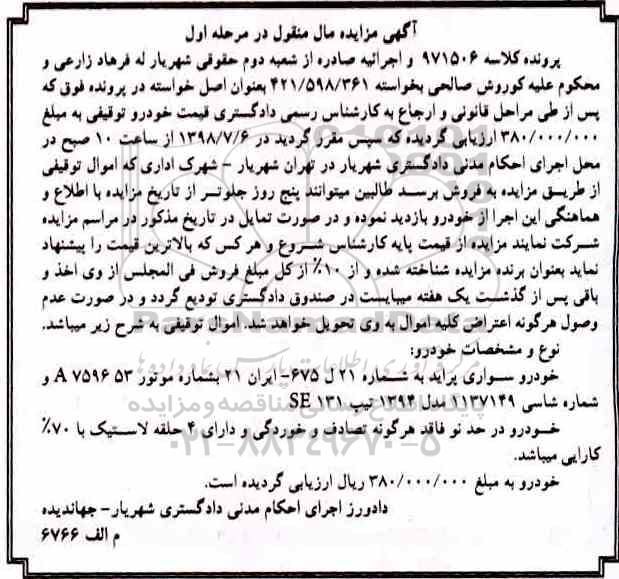 آگهی مزایده مال منقول در مرحله اول
پرونده کلاسه ۹۷۱۵۰۶ و اجرائیه صادره از شعبه دوم حقوقی شهریار له فرهاد زارعی و
محکوم علیه کوروش صالحی بخواسته ۴۲۱/۵۹۸/۳۶۱ بعنوان اصل خواسته در پرونده فوق که
پس از طی مراحل قانونی و ارجاع به کارشناس رسمی دادگستری قیمت خودرو توقیفی به مبلغ
۳۸۰/۰۰۰/۰۰۰ ارزیابی گردیده که سپس مقرر گردید در ۱۳۹۸/۷/۶ از ساعت ۱۰ صبح در
محل اجرای احکام مدنی دادگستری شهریار در تهران شهریار - شهرک اداری که اموال توقیفی
از طریق مزایده به فروش برسد طالبین میتوانند پنج روز جلوتر از تاریخ مزایده با اطلاع و
هماهنگی این اجرا از خودرو بازدید نموده و در صورت تمایل در تاریخ مذکور در مراسم مزایده
شرکت نمایند مزایده از قیمت پایه کارشناس شروع و هر کس که بالاترین قیمت را پیشنهاد
نماید بعنوان برنده مزایده شناخته شده و از ۱۰٪ از کل مبلغ فروش فی المجلس از وی اخذ و
باقی پس از گذشت یک هفته میبایست در صندوق دادگستری تودیع گردد و در صورت عدم
وصول هرگونه اعتراض کلیه اموال به وی تحویل خواهد شد. اموال توقیفی به شرح زیر میباشد.
نوع و مشخصات خودرو:
خودرو سواری پراید به شماره ۲۱ ل ۶۷۵- ایران ۲۱ بشماره موتور ۵۳ ۷۵۹۶ A و
شماره شاسی ۱۱۳۷۱۴۹ مدل ۱۳۹۴ تیپ ۱۳۱ SE
خودرو در حد نو فاقد هرگونه تصادف و خوردگی و دارای ۴ حلقه لاستیک با ۷۰٪
کارایی میباشد.
خودرو به مبلغ ۳۸۰/۰۰۰/۰۰۰ ریال ارزیابی گردیده است.
دادورز اجرای احکام مدنی دادگستری شهریار- جهاندیده
م الف ۶۷۶۶
ParsNamadData
مرکز فرآوری اطلاعات پارس نماد داده ها
پایگاه اطلاع رسانی مناقصه و مزایده
۰۲۱-۸۸۳۴۹۶۷۰-۵